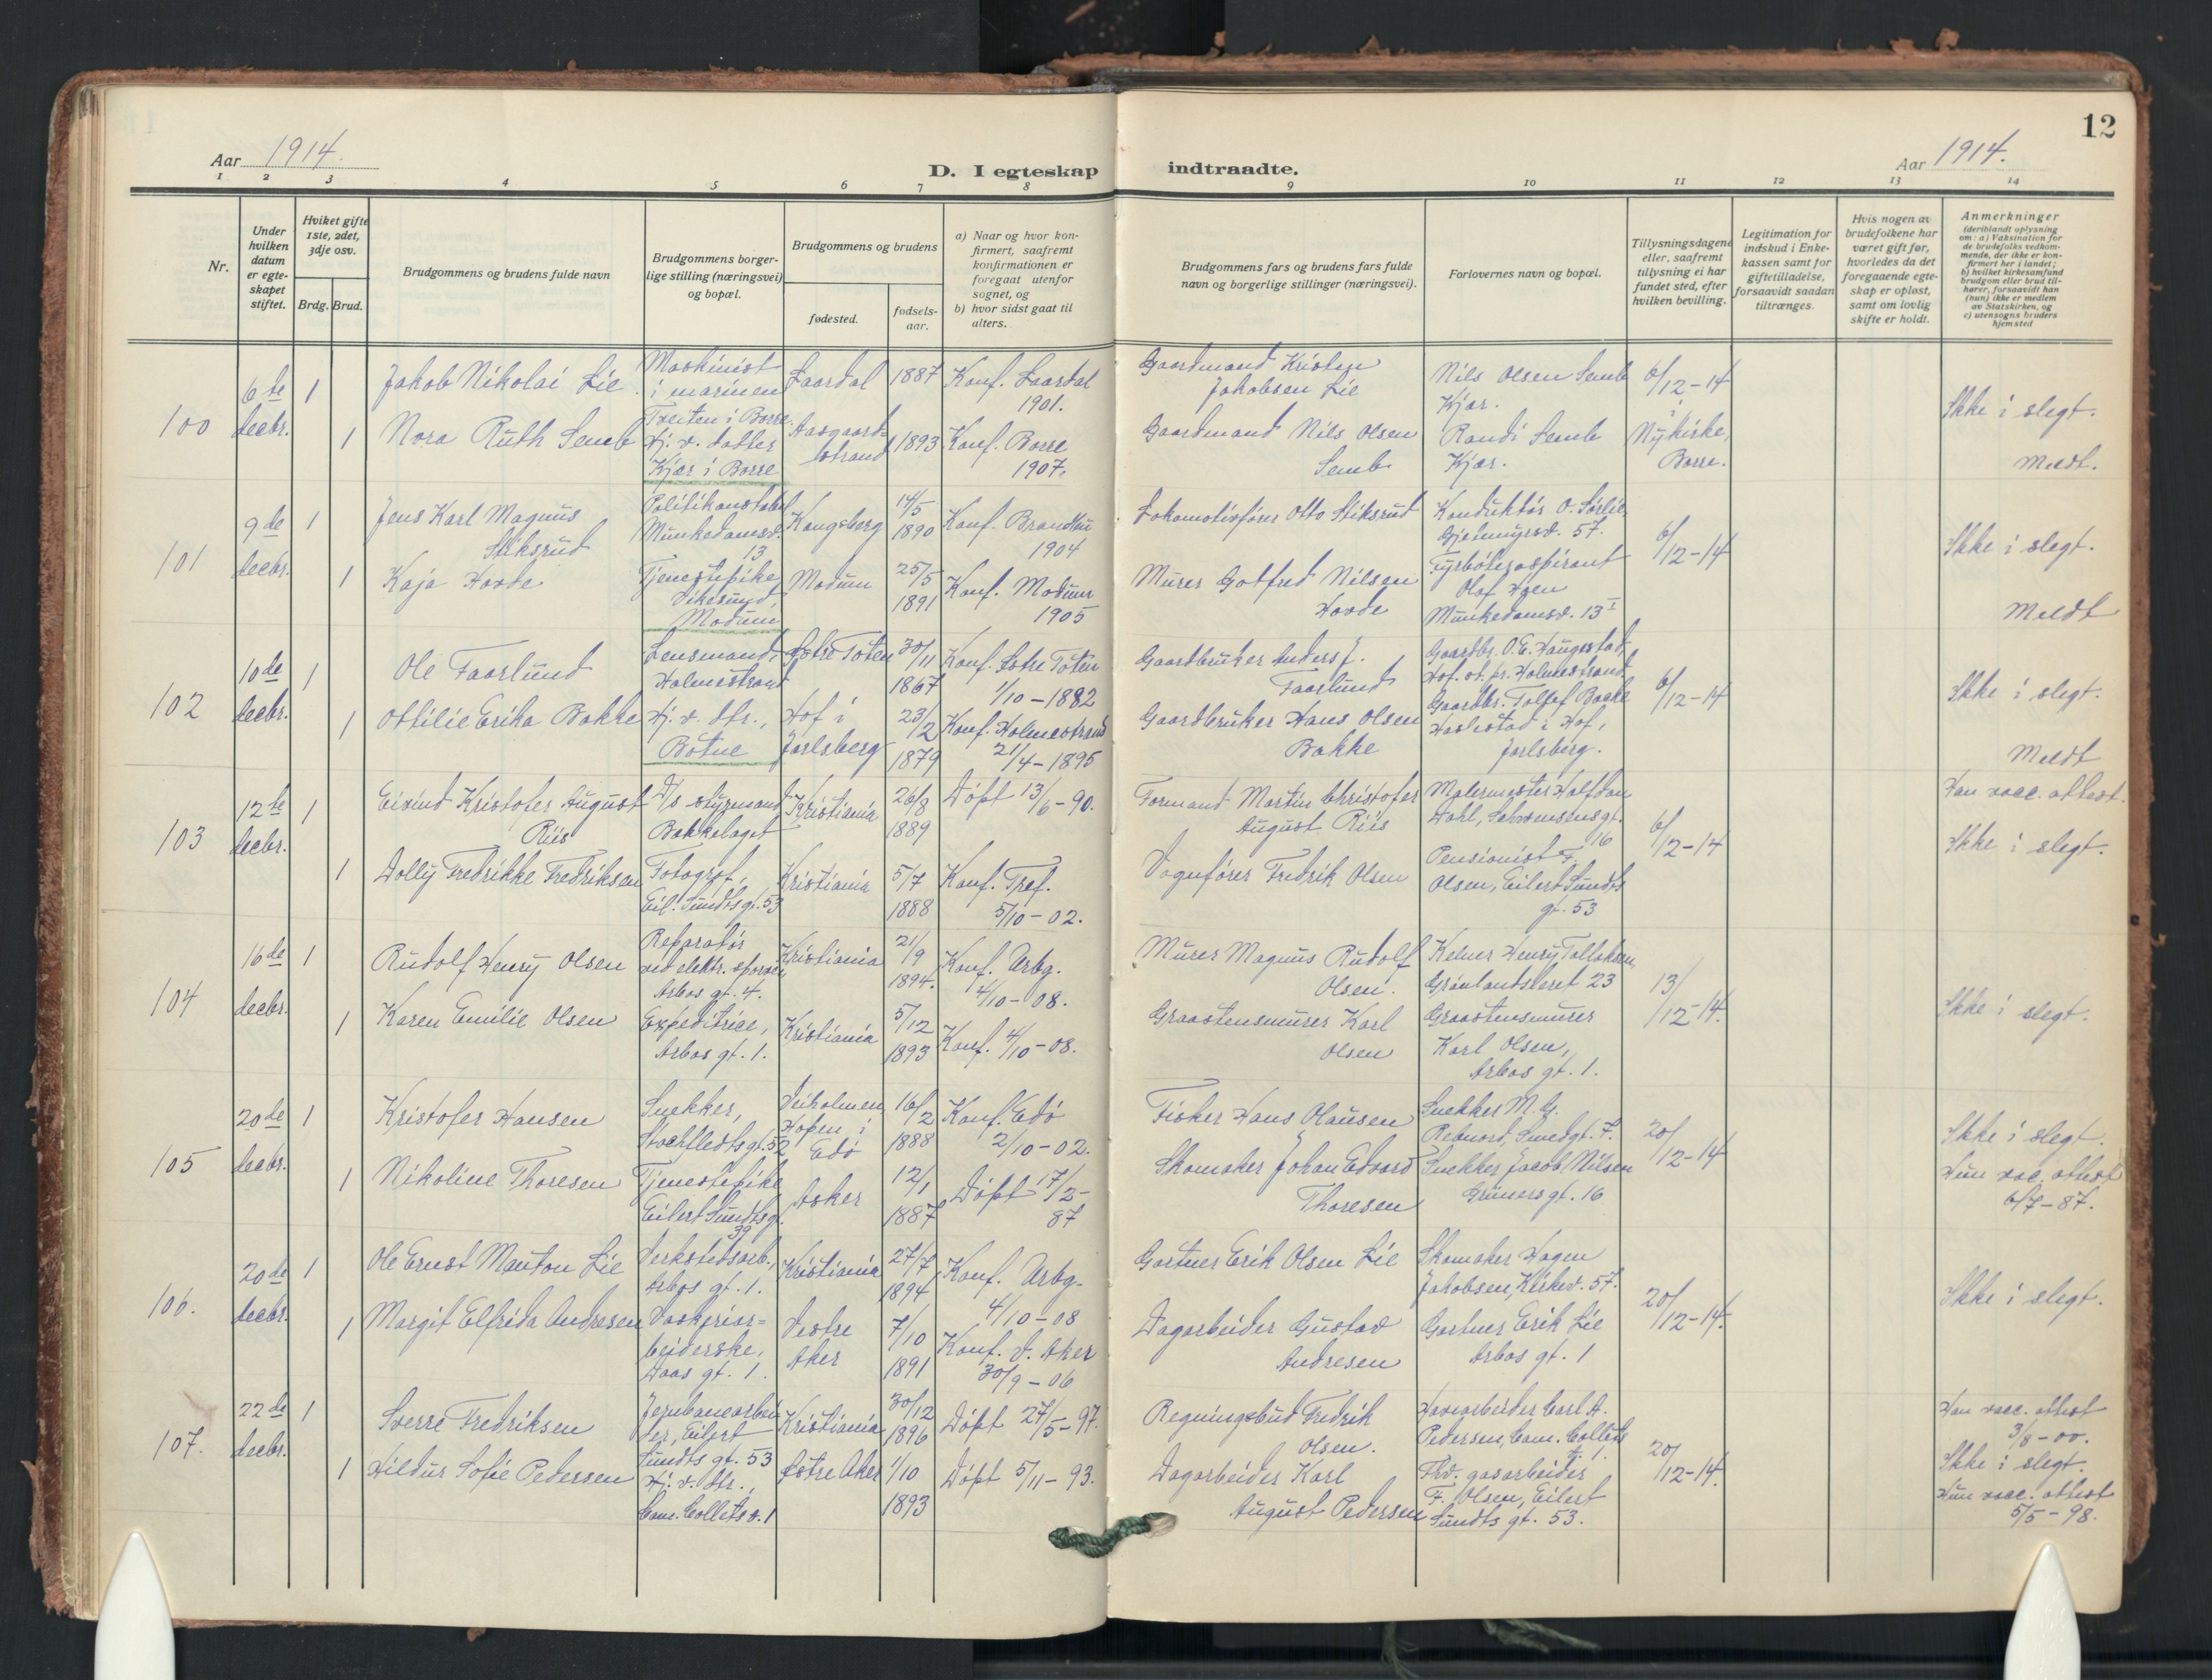 12
Aar 1914.
D. I egteskap indtraadte.
Aar 1914.
1 2 3 4 5 6 7 8 9 10 11 12 13 14
Nr.
Under hvilken datum er egteskapet stiftet.
Hviket gifte 1ste, 2det, 3dje osv.
Brdg. Brud.
Brudgommens og brudens fulde navn
Brudgommens borgerlige stilling (næringsvei) og bopæl.
Brudgommens og brudens
fødested.
fødselsaar.
a) Naar og hvor konfirmert, saafremt konfirmationen er foregaat utenfor sognet, og
b) hvor sidst gaat til alters.
Brudgommens fars og brudens fars fulde navn og borgerlige stillinger (næringsvei).
Forlovernes navn og bopæl.
Tillysningsdagene eller, saafremt tillysning ei har fundet sted, efter hvilken bevilling.
Legitimation for indskud i Enkekassen samt for giftetilladelse, forsaavidt saadan tiltrænges.
Hvis nogen av brudefolkene har været gift før, hvorledes da det foregaaende egteskap er opløst, samt om lovlig skifte er holdt.
Anmerkninger (deriblandt oplysning om: a) Vaksination for de brudefolks vedkommende, der ikke er konfirmert her i landet; b) hvilket kirkesamfund brudgom eller brud tilhører, forsaavidt han (hun) ikke er medlem av Statskirken, og c) utensogns bruders hjemsted
100
6te decbr.
1
Jakob Nikolai Lie
Maskinist i marinen
Tveiten i Borre.
Laardal
1887
Konf. Laardal 1901.
Gaardmand Kristen Jakobsen Lie
Nils Olsen Semb
Kjær.
6/12-14
Nykirke, Borre.
Ikke i slegt.
1
Nora Ruth Semb
Hj. v. datter
Kjær i Borre
Aasgaardstrand
1893
Konf. Borre 1907.
Gaardmand Nils Olsen Semb
Randi Semb
Kjær.
Meldt.
101
9de decbr.
1
Jens Karl Magnus Stiksrud
Politikonstabel
Munkedamsv. 13
Kongsberg
14/5 1890
Konf. Brandbu 1904
Lokomotivfører Otto Stiksrud
Konduktør O. Sørlie,
Gjetemyrsv. 57.
6/12-14
Ikke i slegt.
1
Kaja Hovde
Tjenestepike
Vikesund, Modum
Modum
25/5 1891
Konf. Modum 1905
Murer Gotfred Nilsen Hovde
Fyrbøteraspirant
Olaf Hoen
Munkedamsv. 13 I
Meldt
102
10de decbr.
1
Ole Faarlund
Lensmand,
Holmestrand
Østre Toten
30/11 1867
Konf. Østre Toten 1/10-1882
Gaardbruker Anders J. Faarlund
Gaardbr. O. E. Haugestad,
Hof. st. pr. Holmestrand
6/12-14
Ikke i slegt.
1
Ottilie Erika Bakke
Hj. v. dtr.,
Botne
Hof i Jarlsberg
23/2 1879
Konf. Holmestrand 21/4-1895
Gaardbruker Hans Olsen Bakke
Gaardbr. Tollef Bakke
Haslestad i Hof,
Jarlsberg.
Meldt
103
12te decbr.
1
Eivind Kristofer August Riis
D/s styrmand
Bakkelaget
Kristiania
26/8 1889
Døpt 13/6-90.
Formand Martin Christofer August Riis
Malermester Halfdan
Dahl, Schwensensgt. 16
6/12-14
Han vacc. attest.
Ikke i slegt.
1
Dolly Fredrikke Fredriksen
Fotograf,
Eil. Sundts gt. 53
Kristiania
5/7 1888
Konf. Tref. 5/10-02.
Vognfører Fredrik Olsen
Pensionist F.
Olsen, Eilert Sundts gt. 53
104
16de decbr.
1
Rudolf Henry Olsen
Reparatør
ved elektr. sporvei
Arbos gt. 4.
Kristiania
21/9 1894.
Konf. Arbg. 4/10-08.
Murer Magnus Rudolf Olsen.
Kelner Henry Tollaksen,
Grønlandsleret 23
13/12-14.
Ikke i slegt.
1
Karen Emilie Olsen
Expeditrice,
Arbos gt. 1.
Kristiania
5/12 1893
Konf. 4/10-08.
Graastensmurer Karl Olsen
Graastensmurer
Karl Olsen,
Arbos gt. 1.
105
20de decbr.
1
Kristofer Hansen
Snekker,
Stockfledtsgt. 52
Veiholmen, Hopen i Edø
16/2 1888
Konf. Edø 2/10-02.
Fisker Hans Olausen
Snekker M. G.
Rebnord, Smedgt. 7.
20/12-14
Ikke i slegt.
1
Nikoline Thoresen
Tjenestepike
Eilert Sundtsgt. 39
Asker
12/1 1887
Døpt 17/2-87
Skomaker Johan Edvard Thoresen
Snekker Jacob Nilsen
Grünersgt. 16
Hun vac. attest
6/7-87.
106.
20de decbr.
1
Ole Ernst Manton Lie
Verkstedsarb.,
Arbos gt. 1.
Kristiania
27/7 1894
Konf. Arbg. 4/10-08
Gartner Erik Olsen Lie
Skomaker Hagen
Jakobsen, Kirkev. 57.
20/12-14.
Ikke i slegt.
1
Margit Elfrida Andresen
Vaskeriarbeiderske,
Daas gt. 1.
Vestre Aker
7/10 1891
Konf. V. Aker 30/9-06
Dagarbeider Gustav Andresen
Gartner Erik Lie
Arbos gt. 1
107.
22de decbr.
1
Sverre Fredriksen
Jernbanearbeider, Eilert
Sundts gt. 53
Kristiania
30/12 1896
Døpt 27/5-97.
Regningsbud Fredrik Olsen.
Havearbeider Carl A.
Pedersen, Cam. Colletts v. 1.
20/12-14.
Han vacc. attest
3/8-00.
Ikke i slegt.
1
Hildur Sofie Pedersen
Hj. v. dtr.,
Cam. Colletts v. 1
Østre Aker
1/10 1893
Døpt 5/11-93.
Dagarbeider Karl August Pedersen
Fhv. gasarbeider
F. Olsen, Eilert
Sundts gt. 53.
Hun vacc. attest
5/5-98.